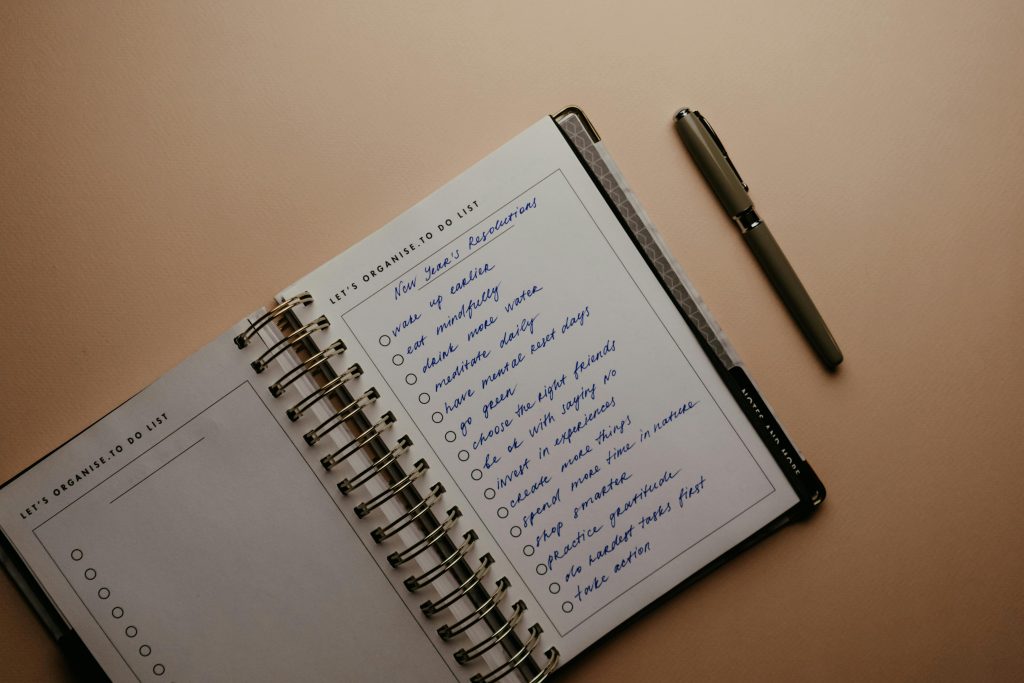 LET'S ORGANISE.TO DO LIST
LET'S ORGANISE.TO DO LIST
New Year's Resolutions
wake up earlier
eat mindfully
drink more water
meditate daily
have mental reset days
go green
choose the right friends
be ok with saying No
invest in experiences
create more things
spend more time in nature
shop smarter
practice gratitude
do hardest tasks first
take action
NOTES AND MORE